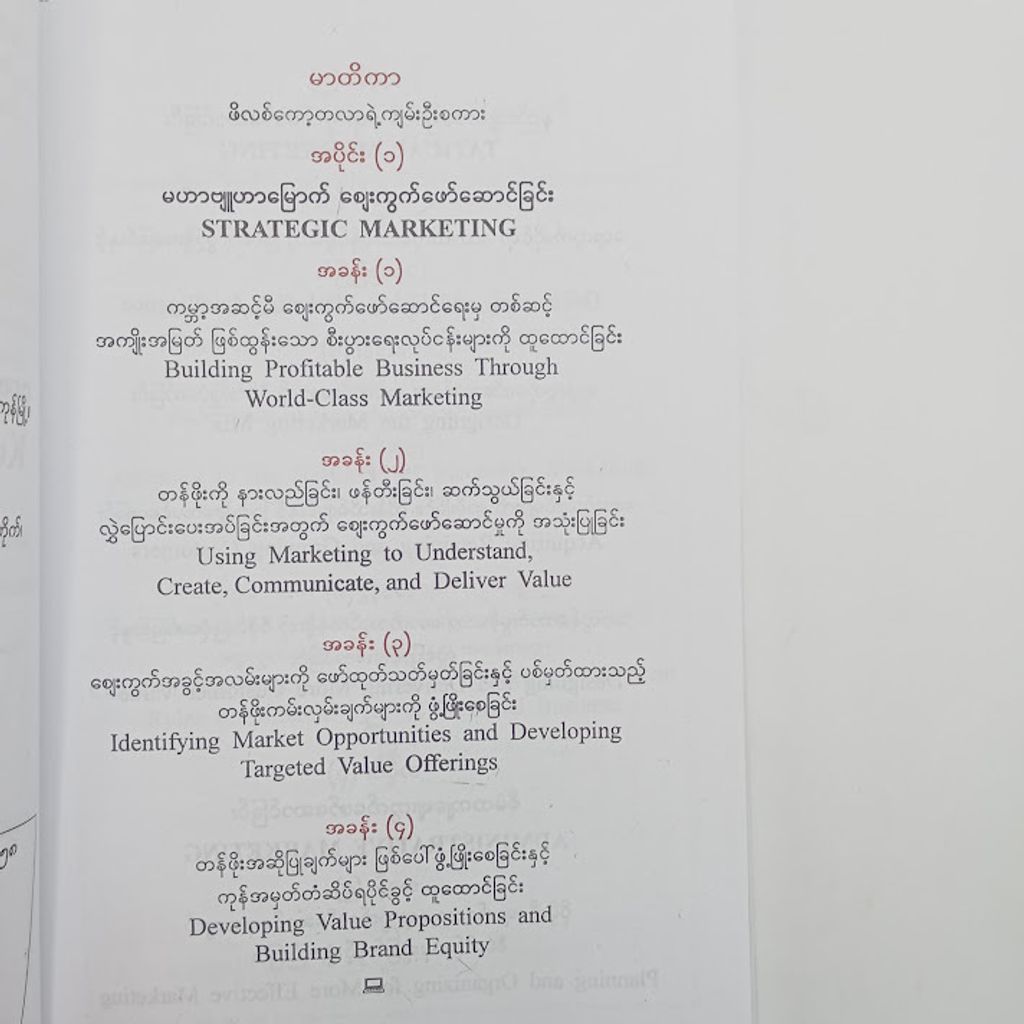 မာတိကာ
ဖိလစ်ကော့တလာရဲ့ကျမ်းဦးစကား
အပိုင်း (၁)
မဟာဗျူဟာမြောက် ဈေးကွက်ဖော်ဆောင်ခြင်း
STRATEGIC MARKETING
အခန်း (၁)
ကမ္ဘာ့အဆင့်မီ ဈေးကွက်ဖော်ဆောင်ရေးမှ တစ်ဆင့်
အကျိုးအမြတ် ဖြစ်ထွန်းသော စီးပွားရေးလုပ်ငန်းများကို ထူထောင်ခြင်း
Building Profitable Business Through
World-Class Marketing
အခန်း (၂)
တန်ဖိုးကို နားလည်ခြင်း၊ ဖန်တီးခြင်း၊ ဆက်သွယ်ခြင်းနှင့်
လွှဲပြောင်းပေးအပ်ခြင်းအတွက် ဈေးကွက်ဖော်ဆောင်မှုကို အသုံးပြုခြင်း
Using Marketing to Understand,
Create, Communicate, and Deliver Value
အခန်း (၃)
ဈေးကွက်အခွင့်အလမ်းများကို ဖော်ထုတ်သတ်မှတ်ခြင်းနှင့် ပစ်မှတ်ထားသည့်
တန်ဖိုးကမ်းလှမ်းချက်များကို ဖွံ့ဖြိုးစေခြင်း
Identifying Market Opportunities and Developing
Targeted Value Offerings
အခန်း (၄)
တန်ဖိုးအဆိုပြုချက်များ ဖြစ်ပေါ်ဖွံ့ဖြိုးစေခြင်းနှင့်
ကုန်အမှတ်တံဆိပ်ရပိုင်ခွင့် ထူထောင်ခြင်း
Developing Value Propositions and
Building Brand Equity